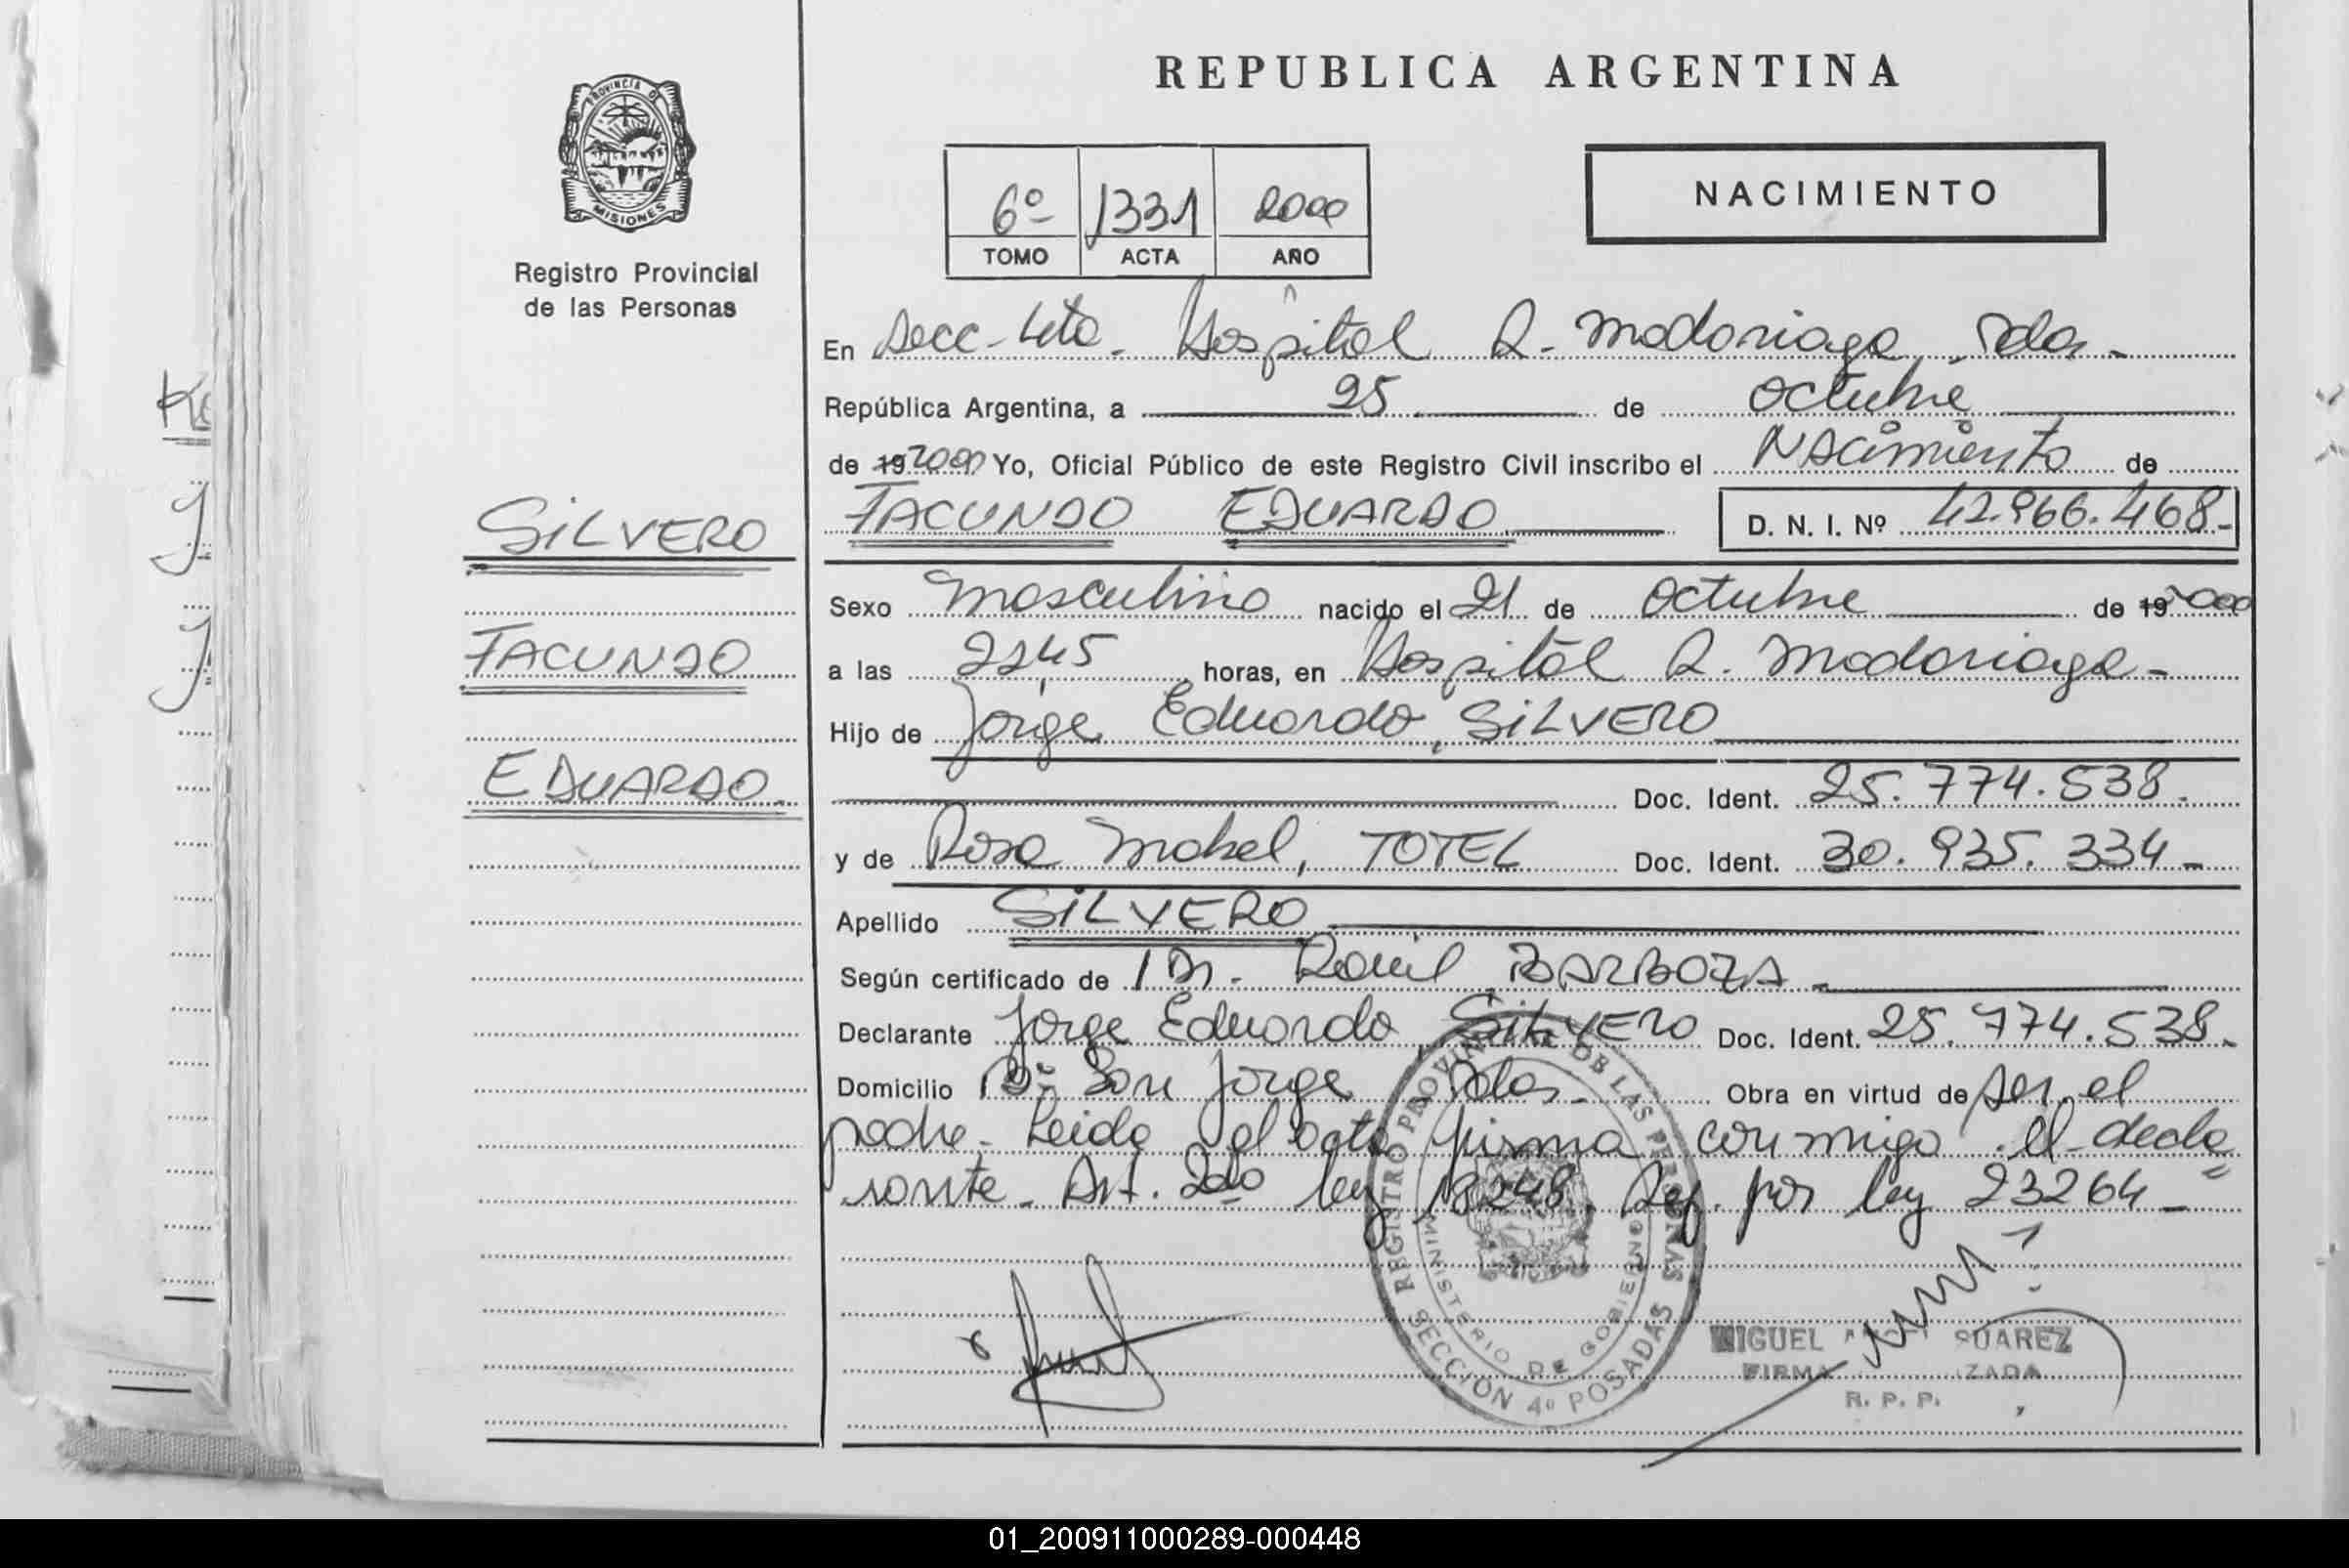 REPUBLICA ARGENTINA
PROVINCIA DE
MISIONES
Registro Provincial
de las Personas
6º 1331 2000
TOMO ACTA AÑO
NACIMIENTO
En Secc-4ta. Hospital R. Madariaga, Pdas.
República Argentina, a 25 de octubre
de 19 2000 Yo, Oficial Público de este Registro Civil inscribo el Nacimiento de
FACUNDO EDUARDO D. N. I. Nº 42.966.468.-
SILVERO
FACUNDO
EDUARDO
Sexo masculino nacido el 21 de octubre de 19 2000
a las 2245 horas, en Hospital R. Madariaga-
Hijo de Jorge Eduardo, SILVERO
Doc. Ident. 25.774.538.
y de Rosa Mabel, TOTEL Doc. Ident. 30.935.334-
Apellido SILVERO
Según certificado de Dr. Raúl BARBOZA
Declarante Jorge Eduardo SILVERO Doc. Ident. 25.774.538.
Domicilio Bº San Jorge Pdas. Obra en virtud de ser el
padre. Leida el acta firma conmigo el decla
rante. Art. 2do ley 18248, Ref. por ley 23264-
REGISTRO PROVINCIAL DE LAS PERSONAS
MINISTERIO DE GOBIERNO
SECCION 4º POSADAS
MIGUEL SUAREZ
FIRMA
R. P. P.
01_200911000289-000448